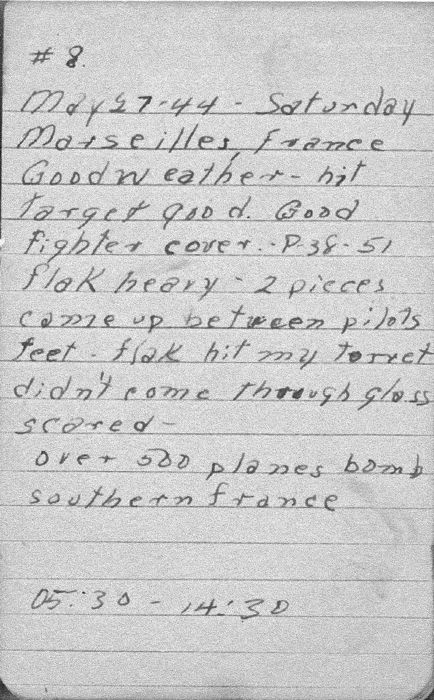 # 8.
May 27-44 - Saturday
Marseilles, France
Good weather - hit
target good. Good
fighter cover. - P-38-51
flak heavy - 2 pieces
came up between pilots
feet. flak hit my torret
didn't come through glass
scared -
over 500 planes bomb
southern france
05:30 - 14:30